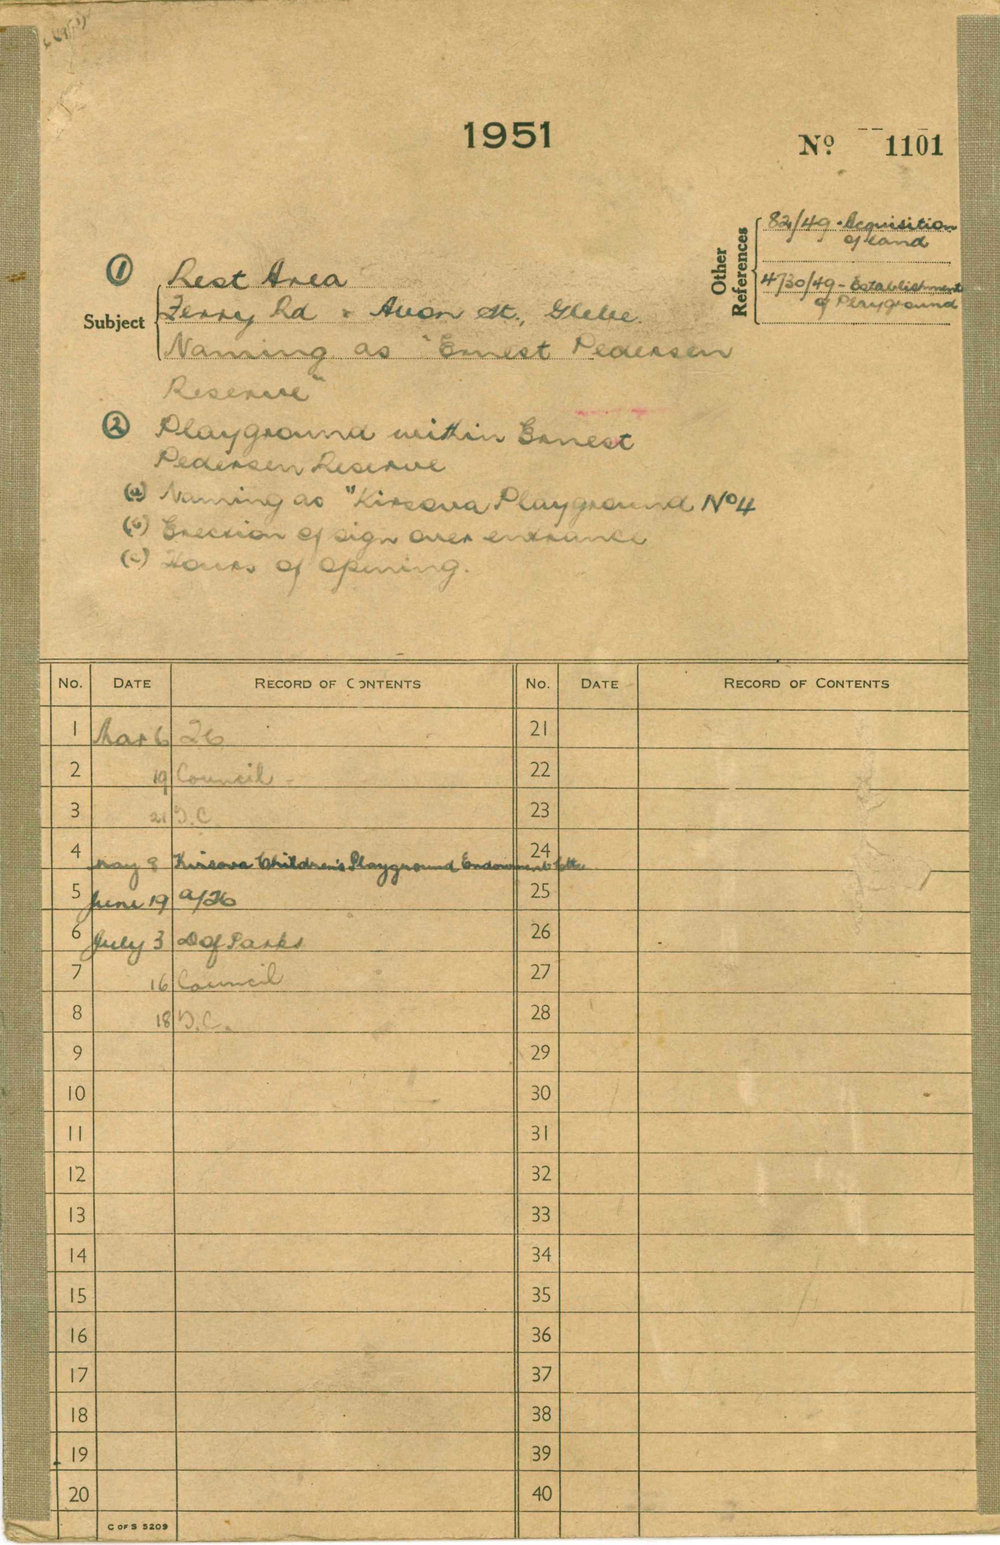 1951
Nº 1101
Other References
82/49 - Acquisition
of land
4730/49 - Establishment
of Playground
Subject
① Rest Area
Ferry Rd & Avon St., Glebe.
Naming as "Ernest Pedersen
Reserve"
② Playground within Ernest
Pedersen Reserve
(a) Naming as "Kirsova Playground Nº4
(b) Erection of sign over entrance
(c) Hours of opening.
No. DATE RECORD OF CONTENTS No. DATE RECORD OF CONTENTS
1 Mar 6 21
2 19 Council 22
3 21 T.C. 23
4 May 8 Kirsova Children's Playground Endowment 24
5 June 19 25
6 July 3 D of Parks 26
7 16 Council 27
8 18 T.C. 28
9 29
10 30
11 31
12 32
13 33
14 34
15 35
16 36
17 37
18 38
19 39
20 40
C OF S 5209